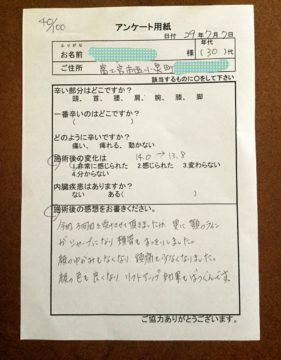 40/100
アンケート用紙
日付 29年7月7日
ふりがな
年代
お名前 様 (30)代
ご住所 富士宮市 小泉町
該当するものに〇をして下さい
辛い部分はどこですか?
頭、首、腰、肩、腕、膝、脚
一番辛いのはどこですか?
( )
どのように辛いですか?
痛い、痺れる、動かない
施術後の変化は 14.0 → 13.8
1.非常に感じられた 2.感じられた 3.変わらない
4.分からない
内臓疾患はありますか?
ない ある( )
施術後の感想をお書きください。
今回3回目を受けさせて頂きましたが、更に顎のライン
がシャープになり 頬骨もすっきりしました。
顔のゆがみもなくなり 頭痛も少なくなりました。
顔の色も良くなり リフトアップ効果もばつぐんです。
ご協力ありがとうございます。